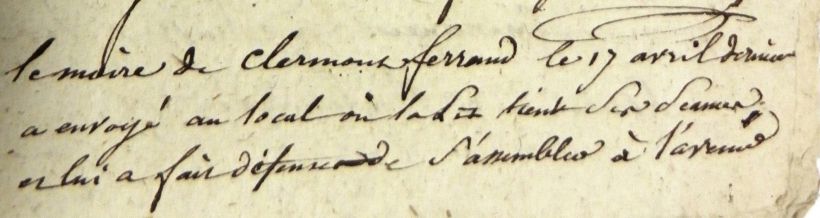 le maire de Clermont ferrand le 17 avril dernier
a envoyé au local où la tient ses séances
et lui a fait défense de s'assembler à l'avenir